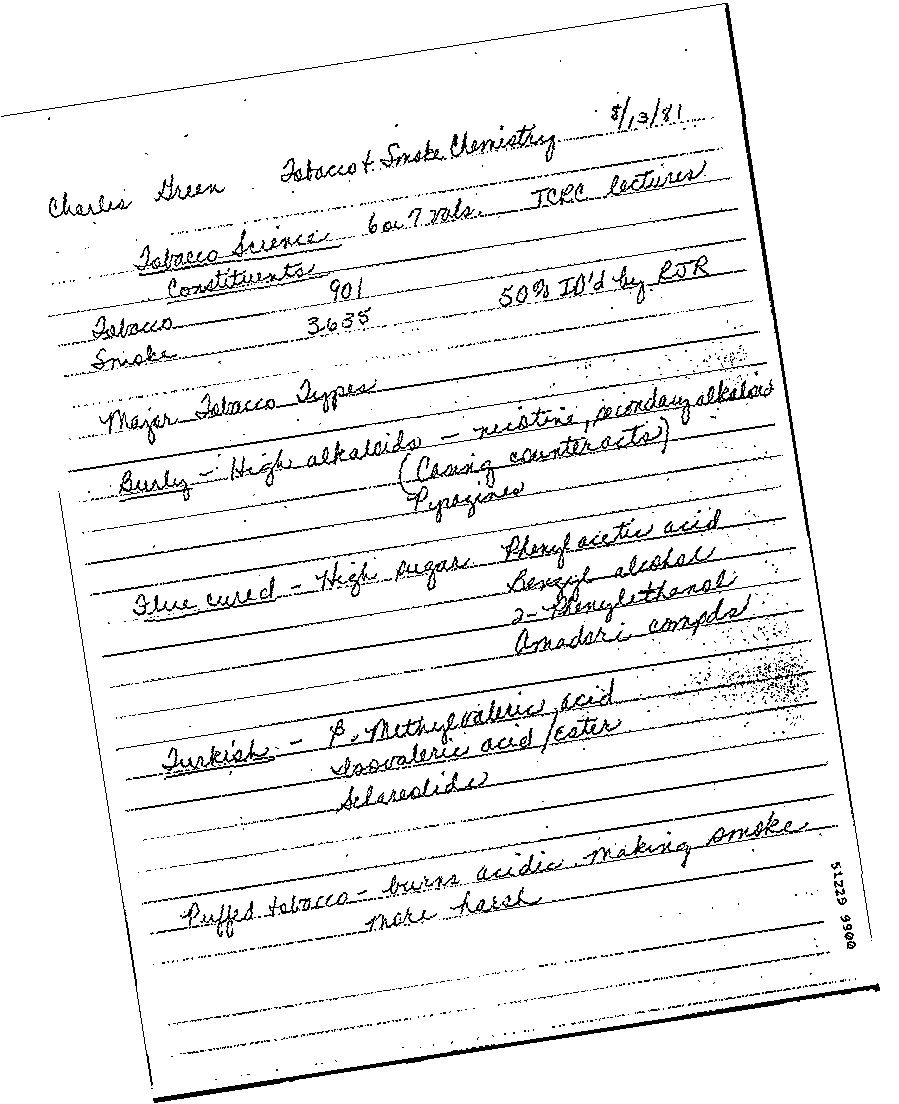 Charles Green Tobacco & Smoke Chemistry 8/13/81
Tobacco Science 6 or 7 vols. TCRC lectures
Constituents
Tobacco 901 50% ID'd by RJR
Smoke 3635
Major Tobacco Types
Burly - High alkaloids - nicotine, secondary alkaloids
(Casing counteracts)
Pyrazines
Flue cured - High sugar Phenylacetic acid
Benzyl alcohol
2-Phenylethanol
Amadori compds
Turkish - β-Methylvaleric acid
Isovaleric acid/ester
Sclareolide
Puffed tobacco - burns acidic, making smoke
more harsh
51229 9900